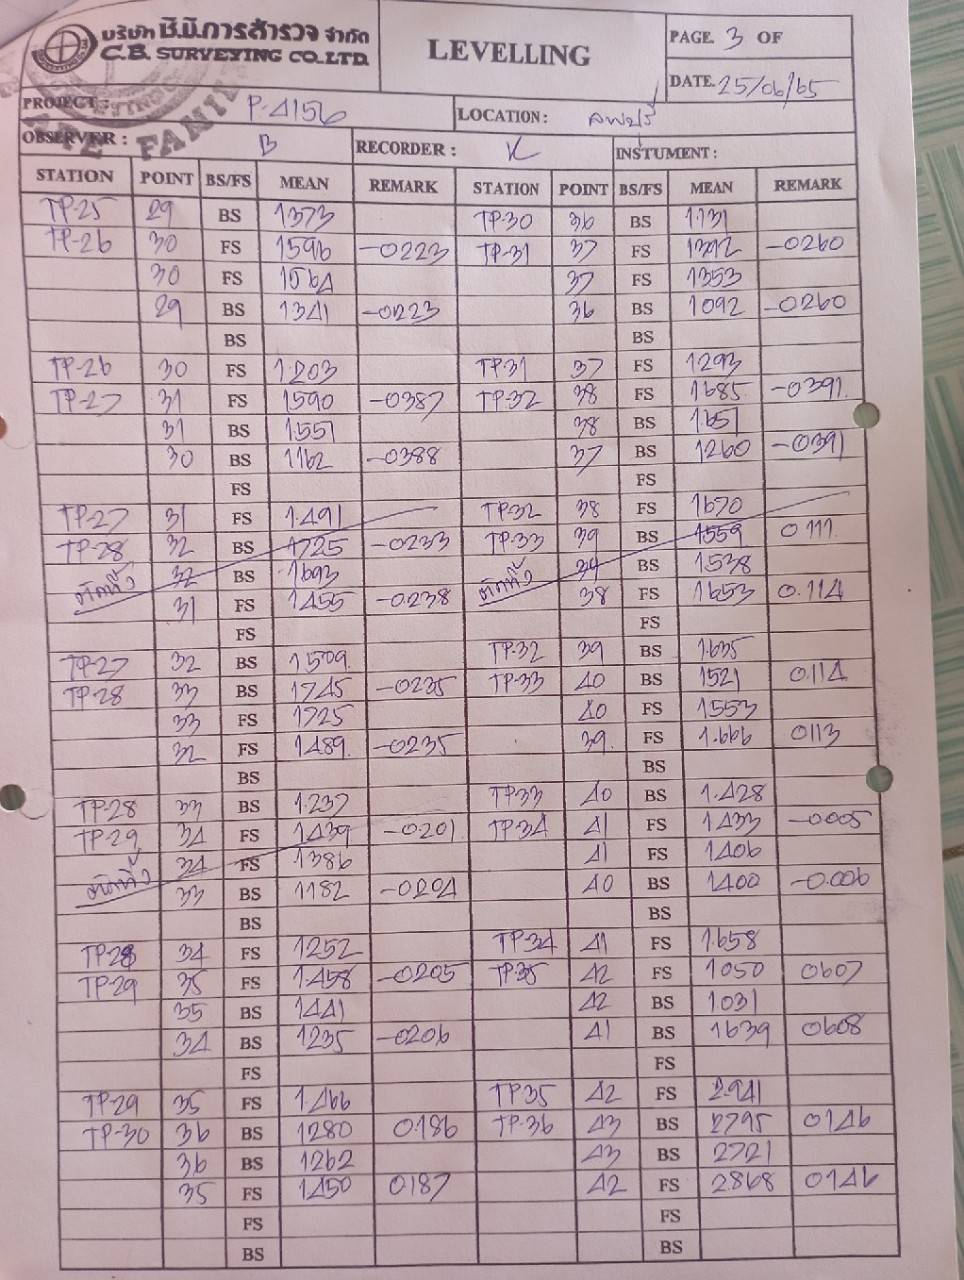 บริษัท ซี.บี.การสำรวจ จำกัด
C.B. SURVEYING CO.,LTD.
LEVELLING
PAGE. 3 OF
DATE. 25/06/65
PROJECT : P-4156 LOCATION : ลพบุรี
OBSERVER : B RECORDER : K INSTUMENT :
STATION POINT BS/FS MEAN REMARK STATION POINT BS/FS MEAN REMARK
TP-25 29 BS 1373 TP-30 36 BS 1.131
TP-26 30 FS 1596 -0223 TP-31 37 FS -0260
30 FS 1564 37 FS 1353
29 BS 1341 -0223 36 BS 1092 -0260
BS BS
TP-26 30 FS 1.203 TP31 37 FS 1293
TP-27 31 FS 1590 -0387 TP-32 38 FS 1685 -0391
31 BS 1551 38 BS 1.651
30 BS 1162 -0388 37 BS 1260 -0391
FS FS
TP-27 31 FS 1.491 TP32 38 FS 1670
TP-28 32 BS 1725 -0233 TP-33 39 BS 1559 0111
ตัดทิ้ง 32 BS 1693 ตัดทิ้ง 39 BS 1538
31 FS 1455 -0.238 38 FS 1653 0.114
FS FS
TP-27 32 BS 1509 TP-32 39 BS 1.635
TP-28 33 BS 1745 -0235 TP-33 40 BS 1521 0114
33 FS 1725 40 FS 1553
32 FS 1489 -0235 39 FS 1.666 0113
BS BS
TP-28 33 BS 1.237 TP33 40 BS 1.428
TP-29 34 FS 1439 -0201 TP-34 41 FS 1433 -0005
ตัดทิ้ง 34 FS 1386 41 FS 1406
33 BS 1182 -0204 40 BS 1400 -0.006
BS BS
TP-28 34 FS 1252 TP-34 41 FS 1.658
TP-29 35 FS 1.458 -0205 TP-35 42 FS 1050 0607
35 BS 1441 42 BS 1031
34 BS 1235 -0206 41 BS 1639 0608
FS FS
TP-29 35 FS 1.466 TP35 42 FS 2.941
TP-30 36 BS 1280 0.186 TP-36 43 BS 2795 0146
36 BS 1262 43 BS 2721
35 FS 1450 0187 42 FS 2868 0146
FS FS
BS BS